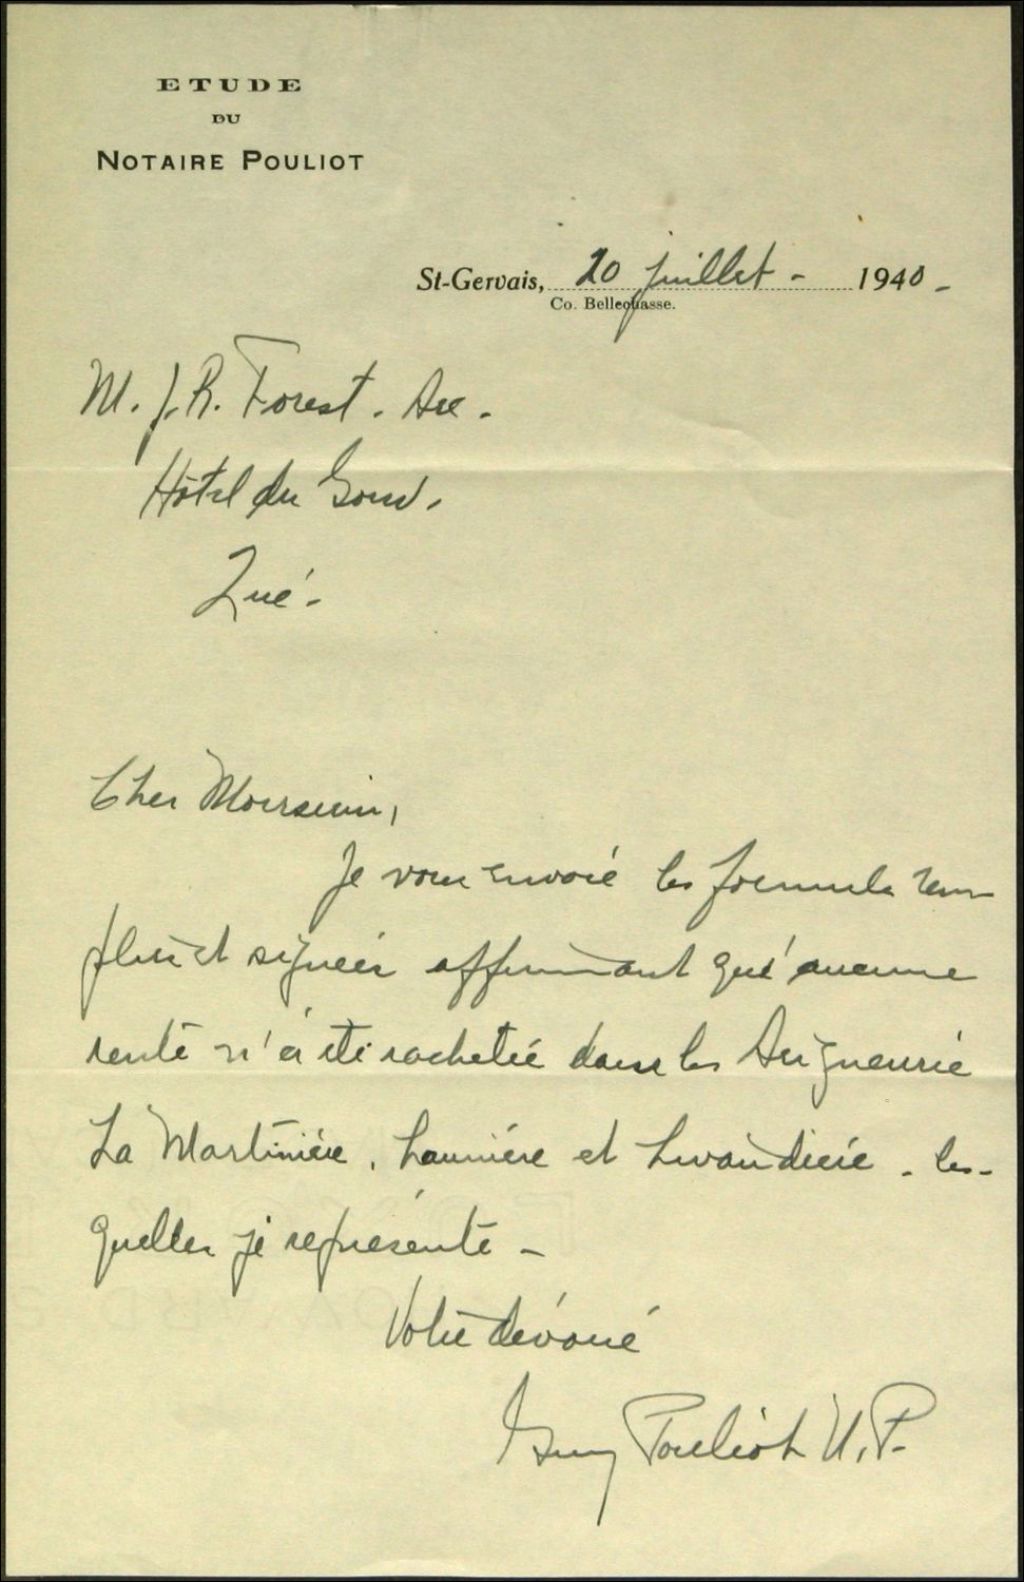 ETUDE
DU
NOTAIRE POULIOT
St-Gervais, 20 juillet - 1940 -
Co. Bellechasse.
M. J. R. Forest. Sec.
Hôtel du Gouv.
Qué.
Cher Monsieur,
Je vous envoie les formules rem
plies et signées affirmant qu'aucune
rente n'a été rachetée dans les Seigneurie
La Martinière, Lauzière et Livaudière - les-
quelles je représente -
Votre dévoué
Pouliot N.P.